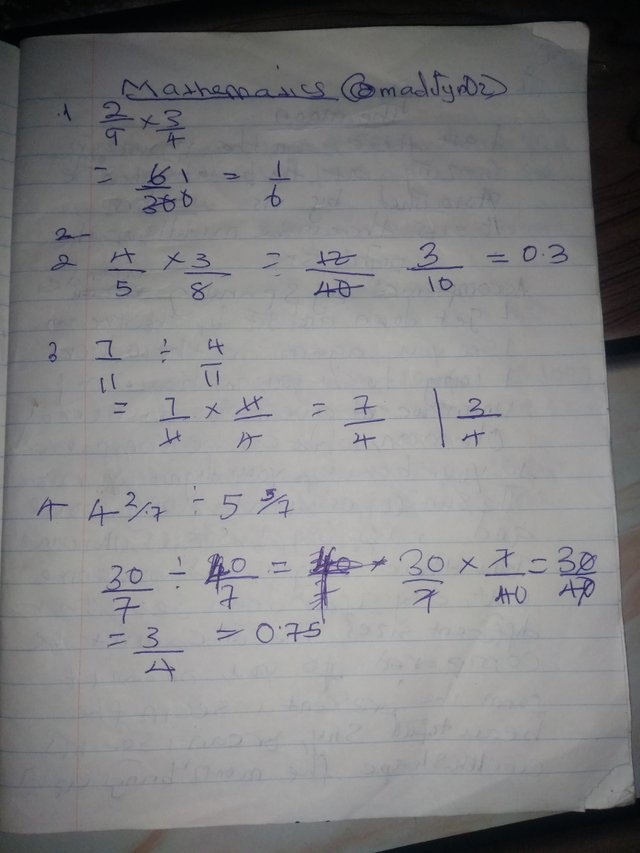 Mathematics (@maddyn02)
1 2/9 × 3/4
= 6/36 1/6 = 1/6
2
2 4/5 × 3/8 = 12/40 3/10 = 0.3
3 7/11 ÷ 4/11
= 7/11 × 11/4 = 7/4 1 3/4
4 4 2/7 ÷ 5 5/7
30/7 ÷ 40/7 = 30/7 × 7/40 = 30/40
= 3/4 = 0.75